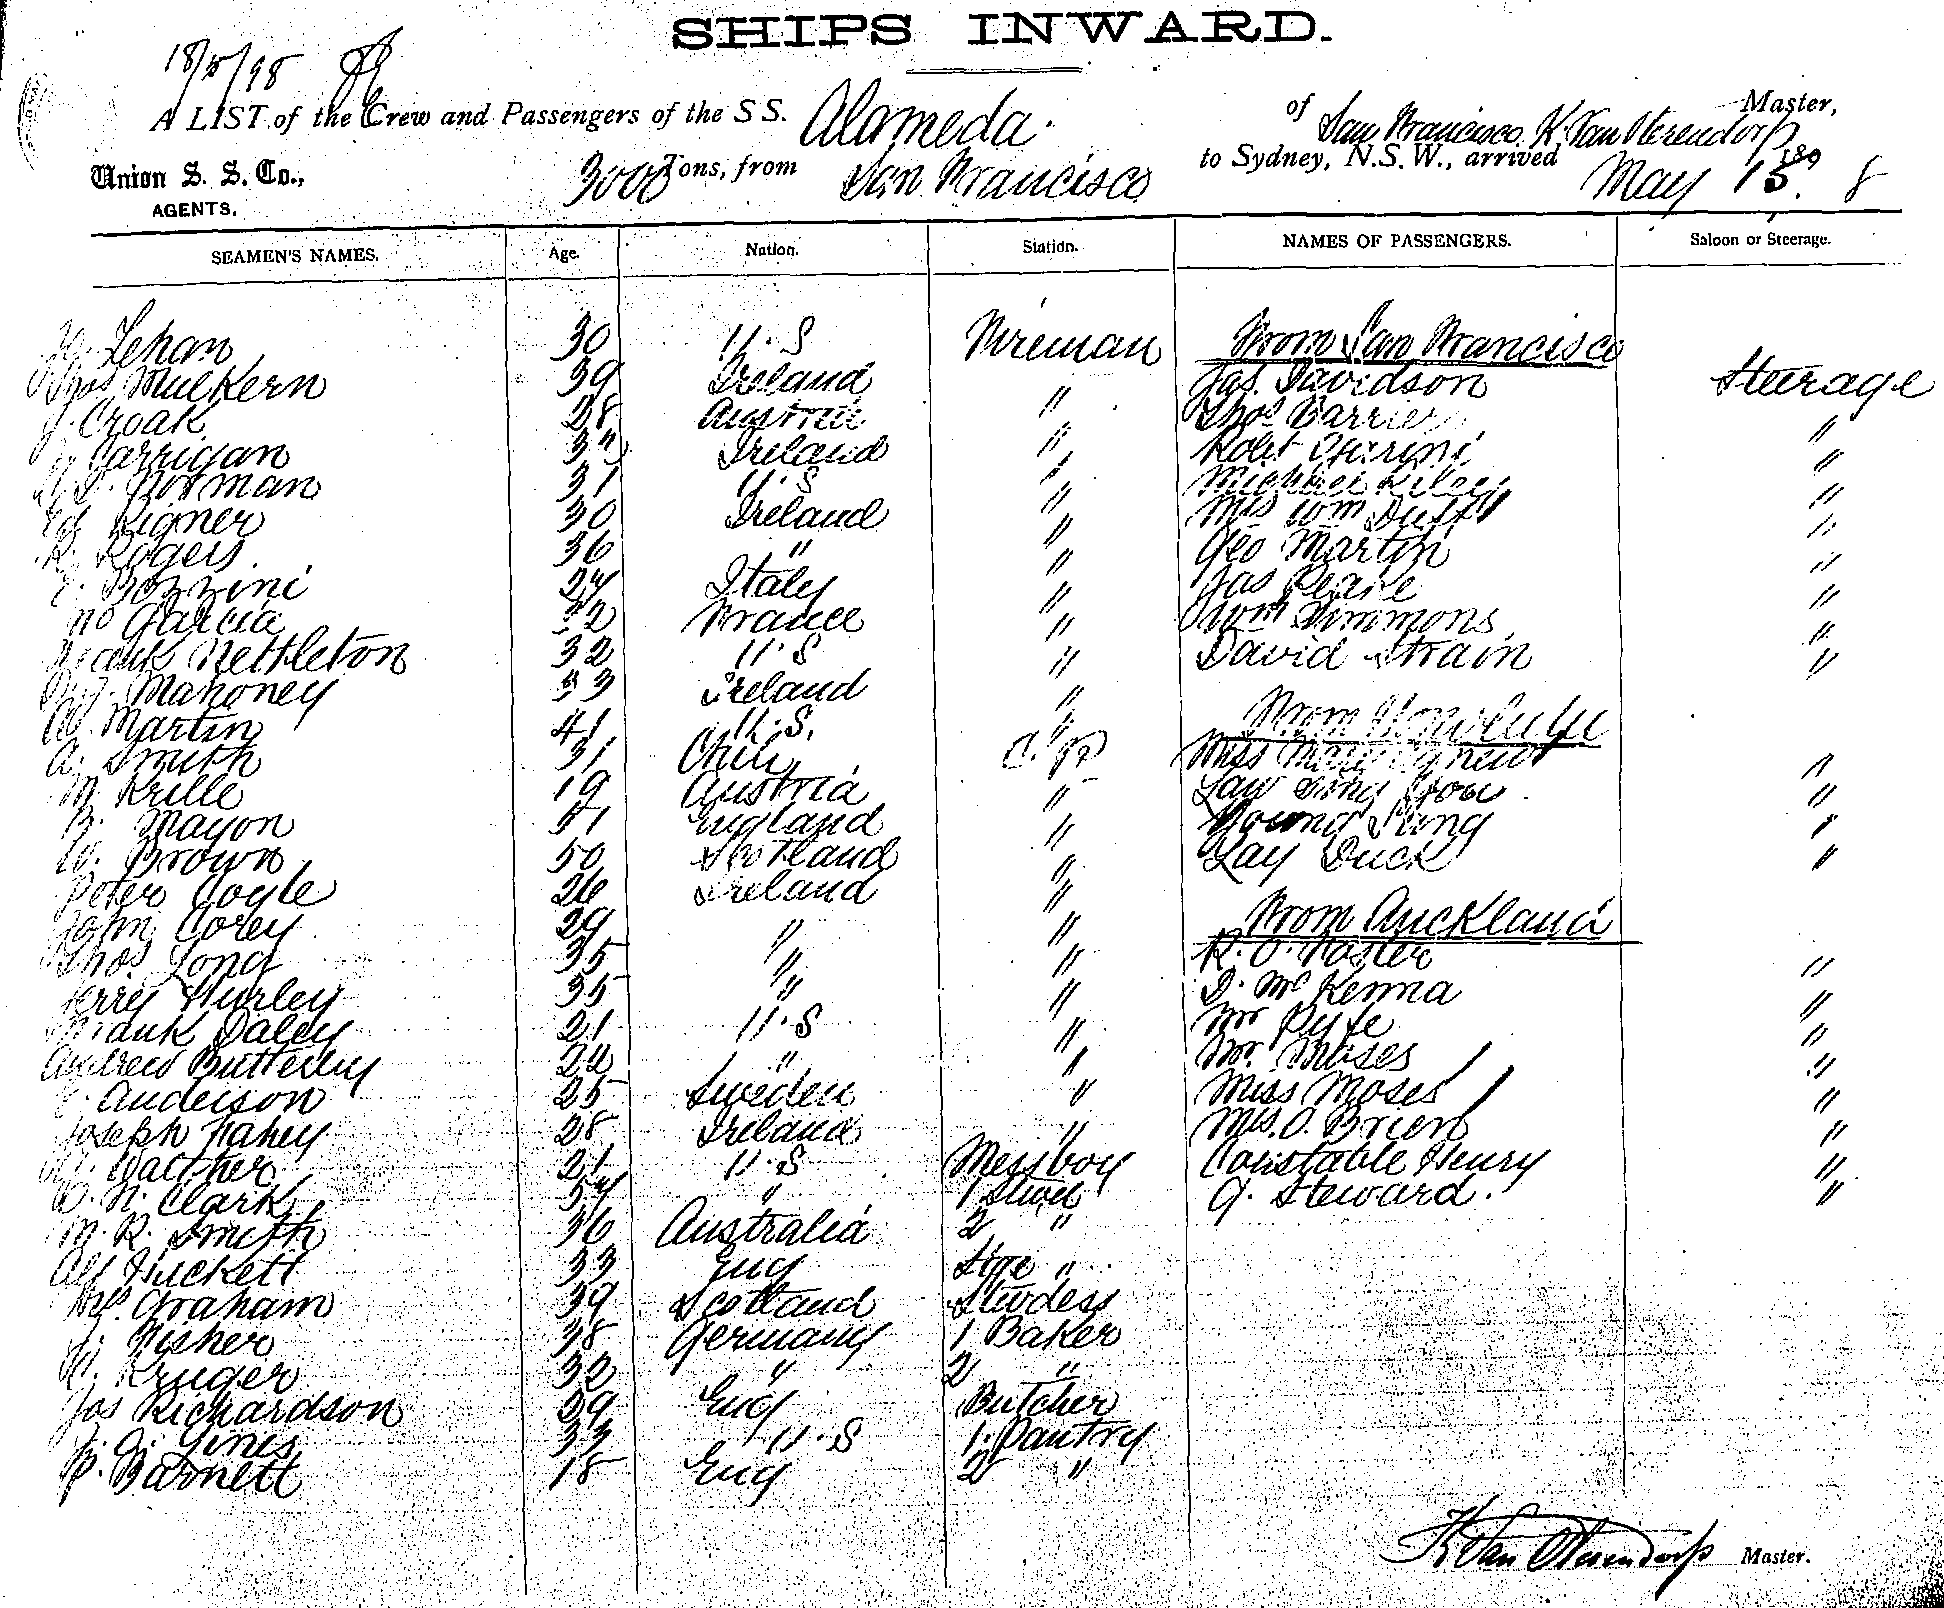 SHIPS INWARD.
18/5/98
A LIST of the Crew and Passengers of the S S. Alameda. of San Francisco. K. Van Oterendorp Master,
Union S. S. Co., AGENTS. 3000 Tons, from San Francisco to Sydney, N.S.W., arrived May 15. 1898
SEAMEN'S NAMES. Age. Nation. Station. NAMES OF PASSENGERS. Saloon or Steerage.
Lehan 30 U.S Fireman From San Francisco
Thos Mulkern 39 Ireland " Jas. Davidson Steerage
J. Croak 28 Austria " Thos Barrier "
Carrigan Ireland " Robt "
Norman 31 U.S " Michael "
Ed Rigner 30 Ireland " Mrs Wm Duff "
R. Rogers. 36 " " Geo Martin "
Bozzini 24 Italy " Jas Pearce "
Garcia France " Wm Simmons "
Frank Nettleton 32 U.S " David Strain "
Mahoney 33 Ireland "
W. Martin 41 U.S. " From Honolulu
A. Smith 31 Chili C. P. Miss Mary Agnew "
M. Krille 19 Austria " Law "
Mayon 51 England " Young "
W. Brown 50 Scotland " Lay Duck "
Peter Coyle 26 Ireland "
John Corey 29 " " From Auckland
Thos Long 35 " " R. O. Foster "
Jerry Hurley 35 " " D. McKenna "
Frank Daley 21 U.S " Mr Pyfe "
Andrew Butterley 22 " " Mr. Moses "
Anderson 25 Sweden " Miss Moses "
Joseph Fahey 28 Ireland " Mrs. O. Brien "
Walther 21 U.S Messboy Constable Henry "
N. Clark 54 " 1 Stwd G. Steward. "
M. R. Smith 36 Australia 2 "
Alf Huckett 33 Eng Stge "
Mrs. Graham 39 Scotland Stwdess
Fisher 38 Germany 1 Baker
Kruger 32 " 2 "
Jos Richardson 39 Eng Butcher
Gines 33 U.S 1. Pantry
P. Barnett 18 Eng 2 "
K Van Oterendorp Master.